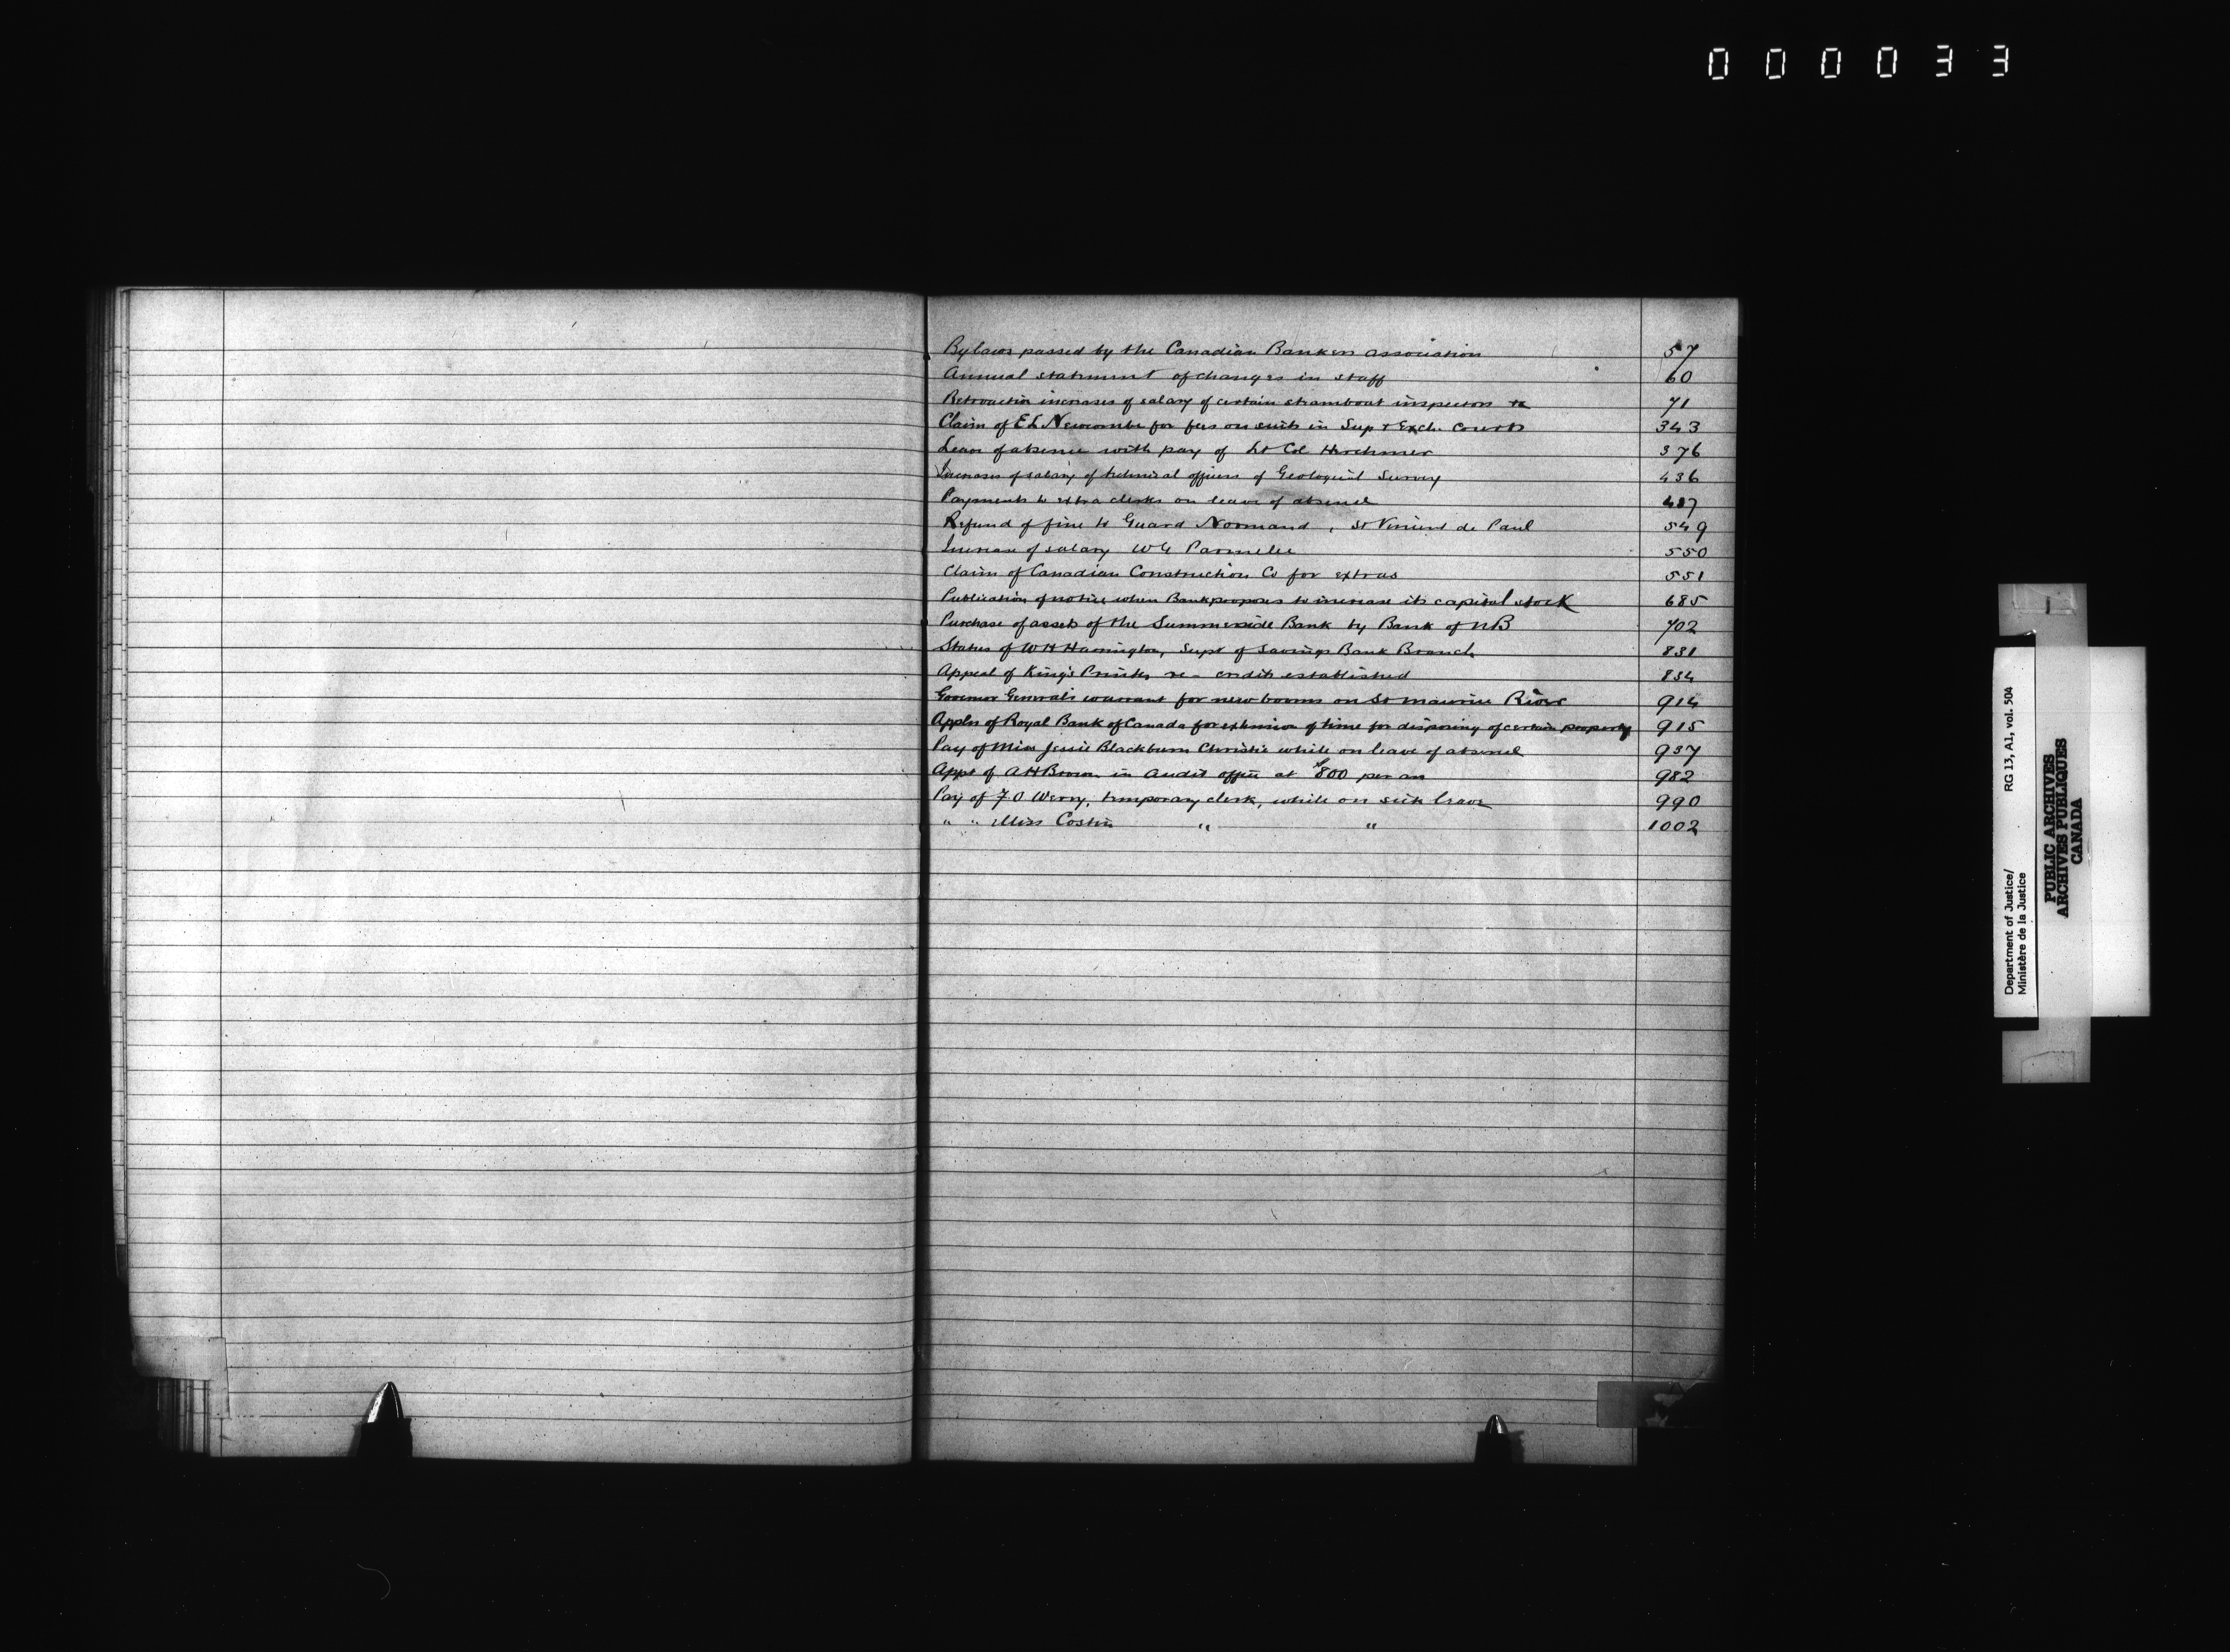 000033
Bylaws passed by the Canadian Bankers Association 57
Annual statement of changes in staff 60
Retroactive increases of salary of certain steamboat inspectors re 71
Claim of E L Newcombe for fees on suits in Sup & Exch. Courts 343
Leave of absence with pay of Lt Col Herchmer 376
Increases of salary of technical officers of Geological Survey 436
Payments to extra clerks on leave of absence 487
Refund of fine to Guard Normand, St Vincent de Paul 549
Increase of salary W G Parmelee 550
Claim of Canadian Construction Co for extras 551
Publication of notice when Bank proposes to increase its capital stock 685
Purchase of assets of the Summerside Bank by Bank of NB 702
Status of W H Harrington, Supt of Savings Bank Branch 831
Appeal of King's Printer re - credits established 834
Governor General's warrant for new booms on St Maurice River 914
Appln of Royal Bank of Canada for extension of time for disposing of certain property 915
Pay of Miss Jessie Blackburn Christie while on leave of absence 937
Appt of A H Brown in Audit office at $800 per an 982
Pay of F O Werry, temporary clerk, while on sick leave 990
" " Miss Costin " " 1002
Department of Justice/ RG 13, A1, vol. 504
Ministère de la Justice
PUBLIC ARCHIVES
ARCHIVES PUBLIQUES
CANADA